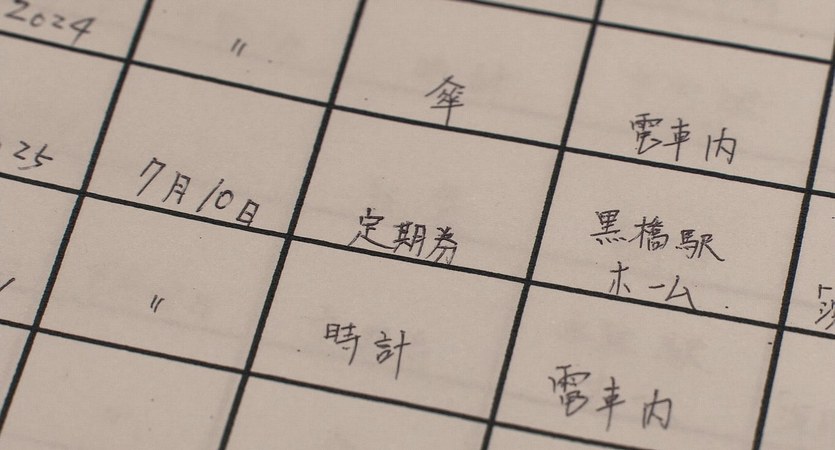 2024 〃 傘 電車内
25 7月10日 定期券 黒橋駅
ホーム
〃 時計 電車内